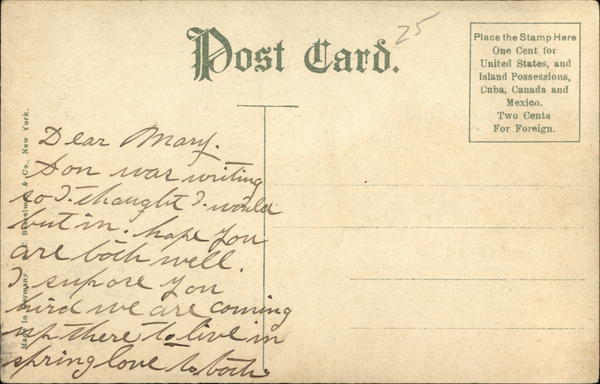 25
Post Card.
Place the Stamp Here
One Cent for
United States, and
Island Possessions,
Cuba, Canada and
Mexico.
Two Cents
For Foreign.
Dear Mary.
Son war writing
so I thaught I would
but in. hope you
are both well.
I supose you
hird we are coming
up there to live in
spring love to both
Made in Germany. & Co., New York.